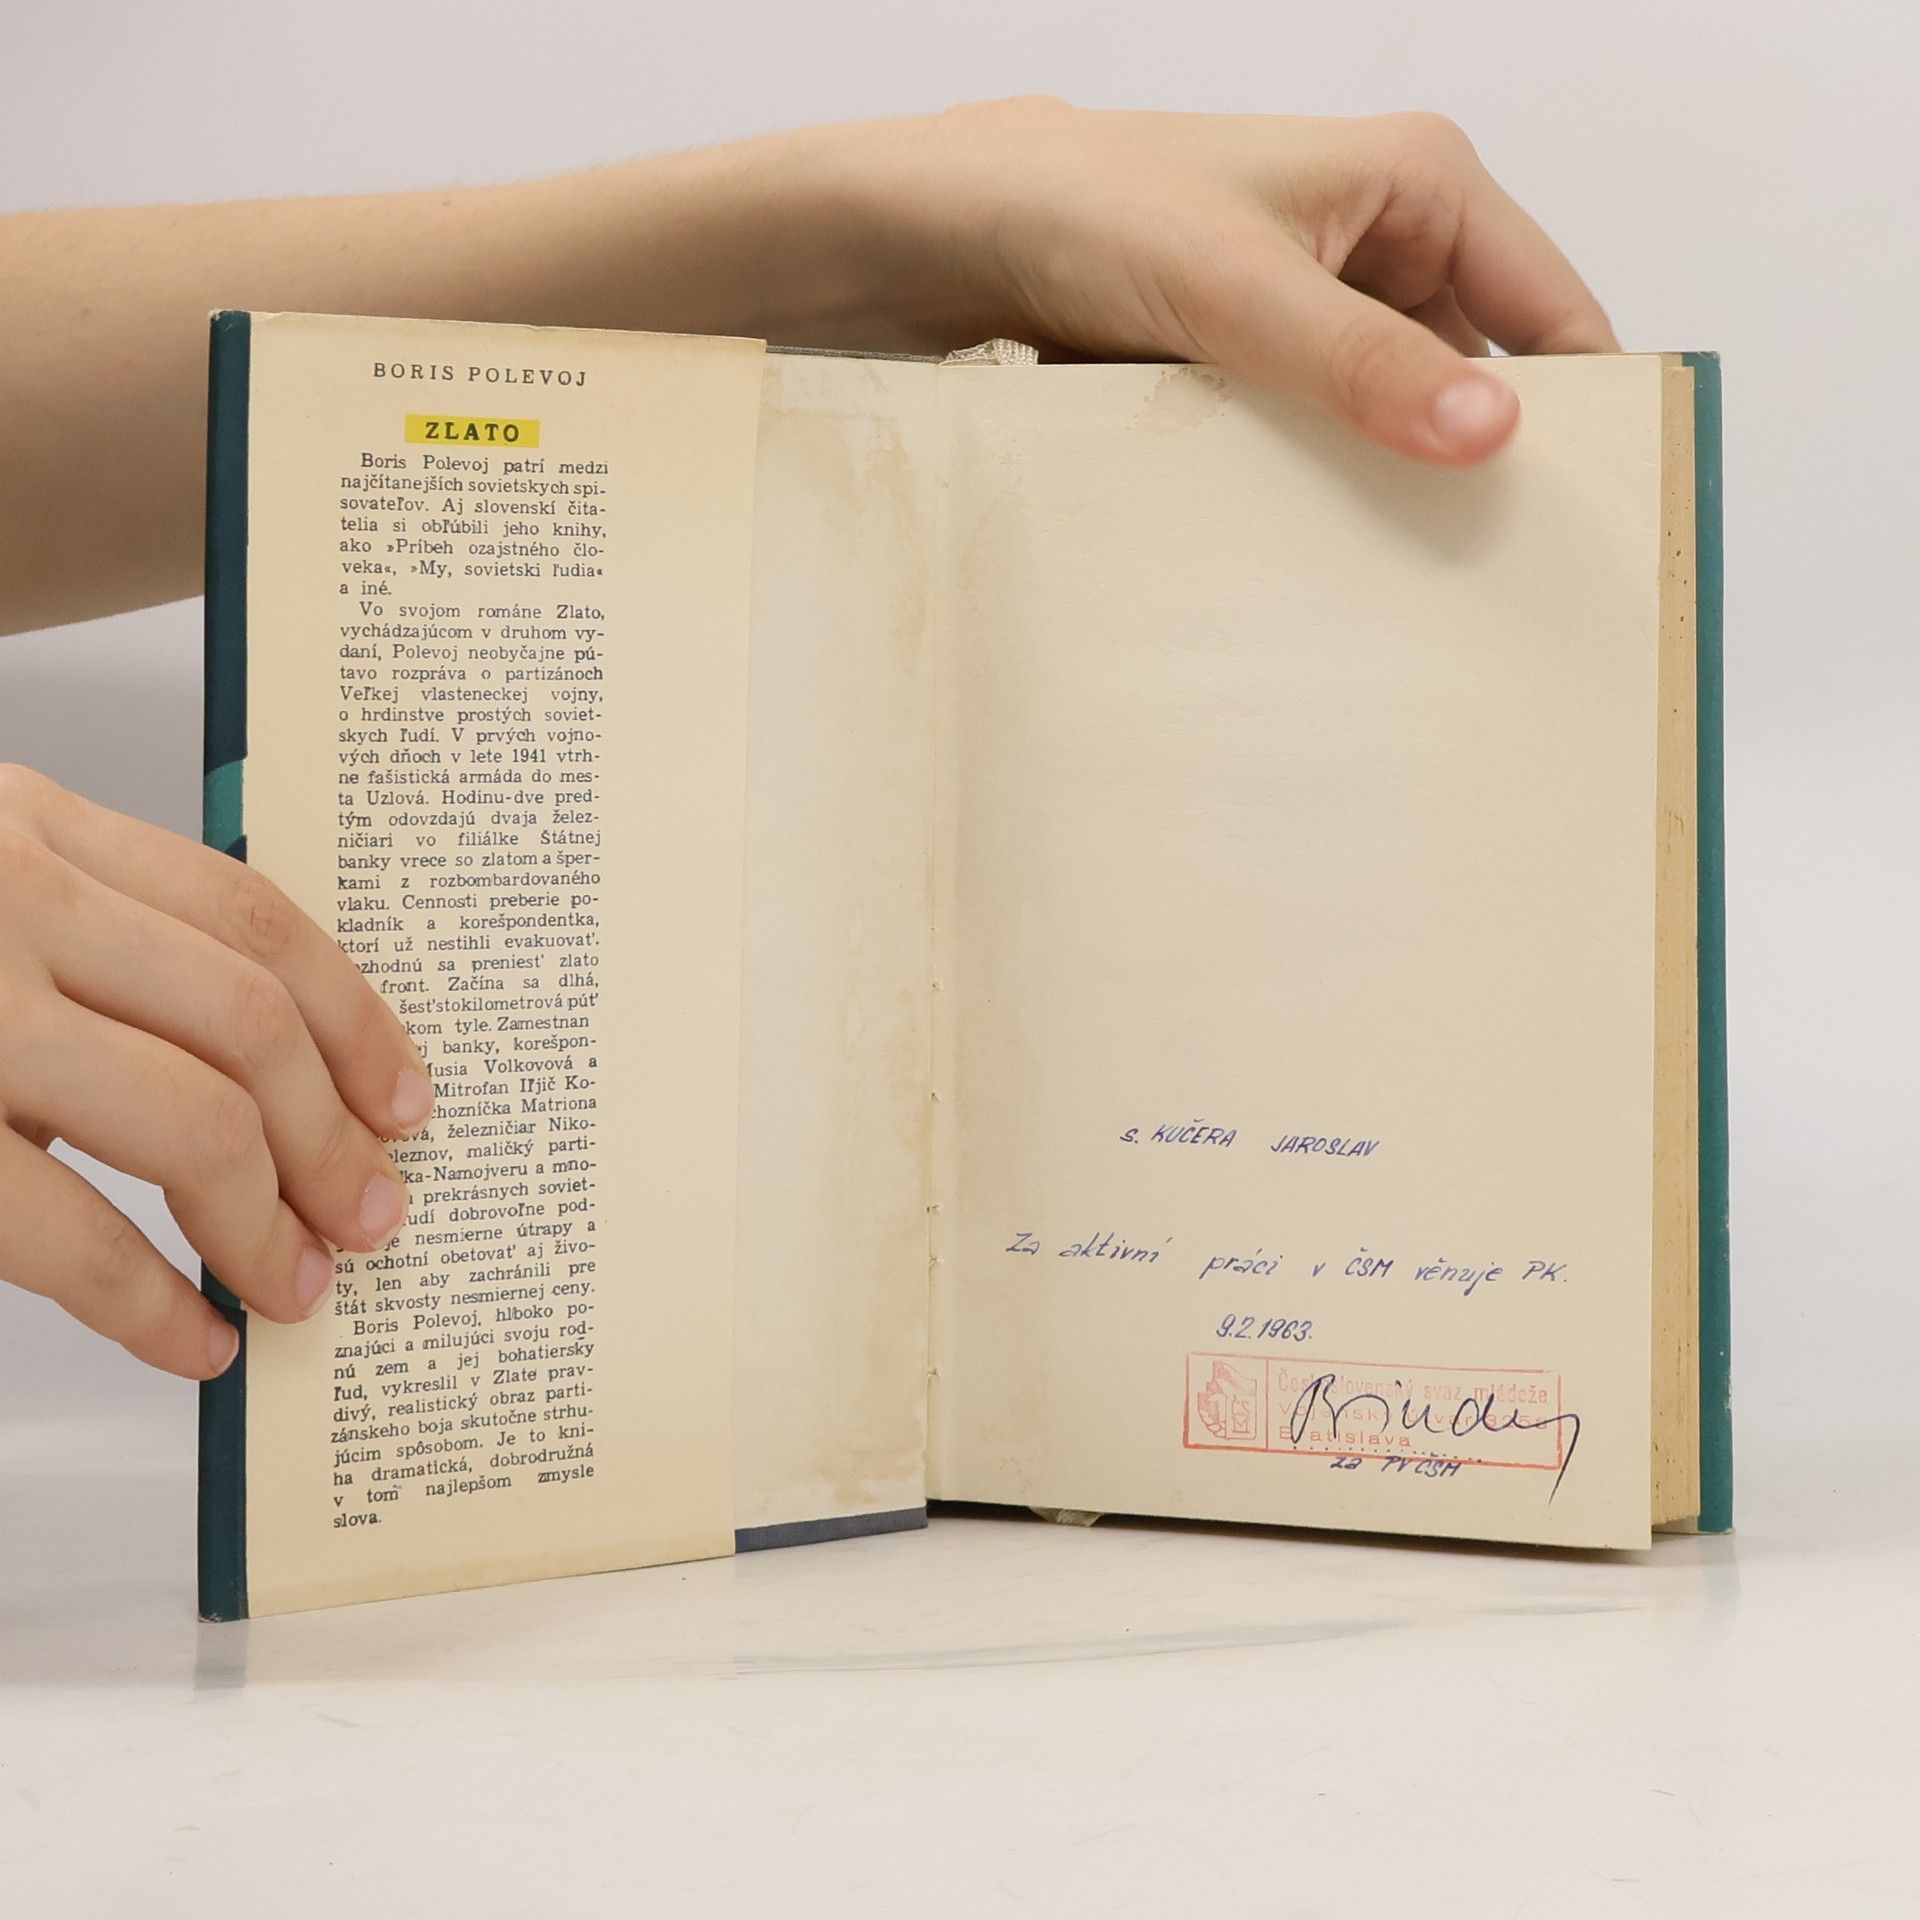 BORIS POLEVOJ
ZLATO
Boris Polevoj patrí medzi
najčítanejších sovietskych spi-
sovateľov. Aj slovenskí čita-
telia si obľúbili jeho knihy,
ako »Príbeh ozajstného člo-
veka«, »My, sovietski ľudia«
a iné.
Vo svojom románe Zlato,
vychádzajúcom v druhom vy-
daní, Polevoj neobyčajne pú-
tavo rozpráva o partizánoch
Veľkej vlasteneckej vojny,
o hrdinstve prostých soviet-
skych ľudí. V prvých vojno-
vých dňoch v lete 1941 vtrh-
ne fašistická armáda do mes-
ta Uzlová. Hodinu-dve pred-
tým odovzdajú dvaja želez-
ničiari vo filiálke Štátnej
banky vrece so zlatom a šper-
kami z rozbombardovaného
vlaku. Cennosti preberie po-
kladník a korešpondentka,
ktorí už nestihli evakuovať.
ozhodnú sa preniesť zlato
front. Začína sa dlhá,
šesťstokilometrová púť
kom tyle. Zamestnan
j banky, korešpon-
Musia Volkovová a
Mitrofan Iľjič Ko-
choznička Matriona
ová, železničiar Niko-
eleznov, maličký parti-
ka-Namojveru a mno-
prekrásnych soviet-
udí dobrovoľne pod-
je nesmierne útrapy a
sú ochotní obetovať aj živo-
ty, len aby zachránili pre
štát skvosty nesmiernej ceny.
Boris Polevoj, hlboko po-
znajúci a milujúci svoju rod-
nú zem a jej bohatiersky
ľud, vykreslil v Zlate prav-
divý, realistický obraz parti-
zánskeho boja skutočne strhu-
júcim spôsobom. Je to kni-
ha dramatická, dobrodružná
v tom najlepšom zmysle
slova.
s. KUČERA JAROSLAV
Za aktivní práci v ČSM věnuje PK.
9.2.1963.
Československý svaz mládeže
Vojenský útvar
Bratislava
za PV ČSM